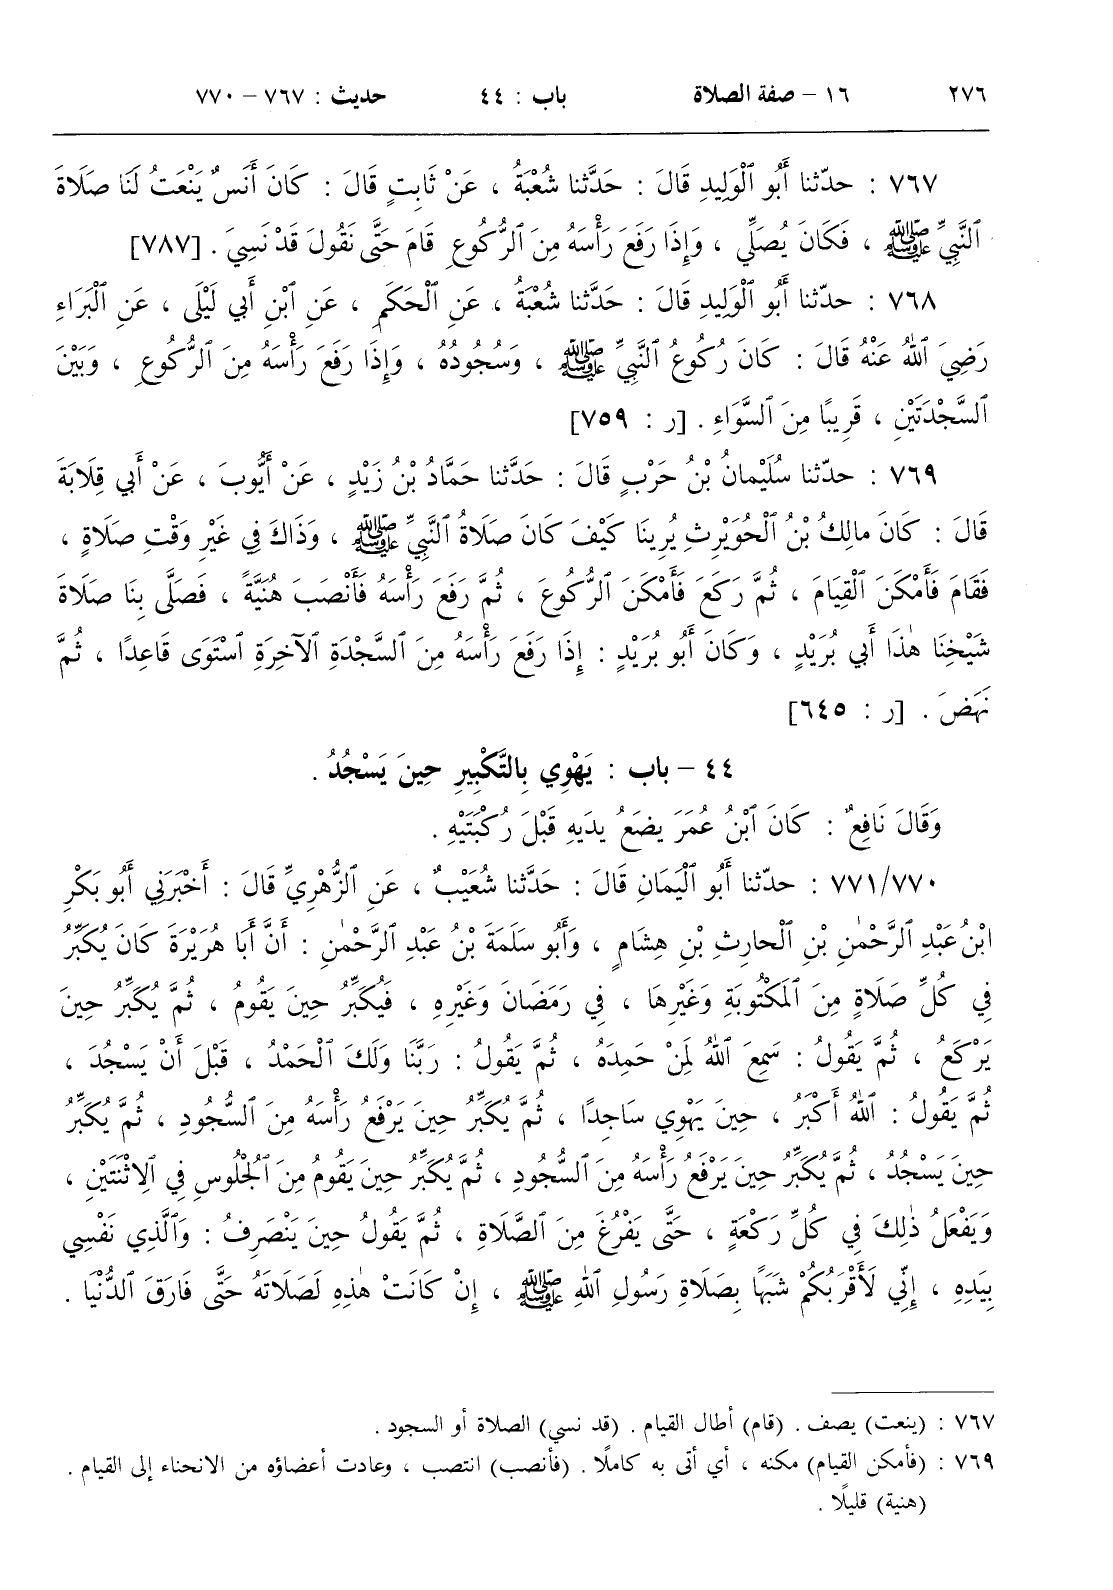 ٢٧٦ ١٦ – صفة الصلاة باب : ٤٤ حديث : ٧٦٧ – ٧٧٠
٧٦٧ : حدّثنا أَبُو ٱلْوَلِيدِ قَالَ : حَدَّثنا شُعْبَةُ ، عَنْ ثَابِتٍ قَالَ : كَانَ أَنَسٌ يَنْعَتُ لَنَا صَلَاةَ
ٱلنَّبِيِّ ﷺ ، فَكَانَ يُصَلِّي ، وَإِذَا رَفَعَ رَأْسَهُ مِنَ ٱلرُّكُوعِ قَامَ حَتَّى نَقُولَ قَدْ نَسِيَ . [٧٨٧]
٧٦٨ : حدّثنا أَبُو ٱلْوَلِيدِ قَالَ : حَدَّثنا شُعْبَةُ ، عَنِ ٱلْحَكَمِ ، عَنِ ٱبْنِ أَبِي لَيْلَى ، عَنِ ٱلْبَرَاءِ
رَضِيَ ٱللهُ عَنْهُ قَالَ : كَانَ رُكُوعُ ٱلنَّبِيِّ ﷺ ، وَسُجُودُهُ ، وَإِذَا رَفَعَ رَأْسَهُ مِنَ ٱلرُّكُوعِ ، وَبَيْنَ
ٱلسَّجْدَتَيْنِ ، قَرِيبًا مِنَ ٱلسَّوَاءِ . [ر : ٧٥٩]
٧٦٩ : حدّثنا سُلَيْمانُ بْنُ حَرْبٍ قَالَ : حَدَّثنا حَمَّادُ بْنُ زَيْدٍ ، عَنْ أَيُّوبَ ، عَنْ أَبِي قِلَابَةَ
قَالَ : كَانَ مالِكُ بْنُ ٱلْحُوَيْرِثِ يُرِينَا كَيْفَ كَانَ صَلَاةُ ٱلنَّبِيِّ ﷺ ، وَذَاكَ فِي غَيْرِ وَقْتِ صَلَاةٍ ،
فَقَامَ فَأَمْكَنَ ٱلْقِيَامَ ، ثُمَّ رَكَعَ فَأَمْكَنَ ٱلرُّكُوعَ ، ثُمَّ رَفَعَ رَأْسَهُ فَأَنْصَبَ هُنَيَّةً ، فَصَلَّى بِنَا صَلَاةَ
شَيْخِنَا هٰذَا أَبِي بُرَيْدٍ ، وَكَانَ أَبُو بُرَيْدٍ : إِذَا رَفَعَ رَأْسَهُ مِنَ ٱلسَّجْدَةِ ٱلآخِرَةِ ٱسْتَوَى قَاعِدًا ، ثُمَّ
نَهَضَ . [ر : ٦٤٥]
٤٤ – باب : يَهْوِي بِالتَّكْبِيرِ حِينَ يَسْجُدُ .
وَقَالَ نَافِعٌ : كَانَ ٱبْنُ عُمَرَ يضَعُ يدَيهِ قَبْلَ رُكْبَتَيْهِ .
٧٧١/٧٧٠ : حدّثنا أَبُو ٱلْيَمَانِ قَالَ : حَدَّثنا شُعَيْبٌ ، عَنِ ٱلزُّهْرِيِّ قَالَ : أَخْبَرَنِي أَبُو بَكْرِ
ابْنُ عَبْدِ ٱلرَّحْمٰنِ بْنِ ٱلْحارِثِ بْنِ هِشَامٍ ، وَأَبُو سَلَمَةَ بْنُ عَبْدِ ٱلرَّحْمٰنِ : أَنَّ أَبَا هُرَيْرَةَ كَانَ يُكَبِّرُ
فِي كُلِّ صَلَاةٍ مِنَ ٱلمَكْتُوبَةِ وَغَيْرِهَا ، فِي رَمَضَانَ وَغَيْرِهِ ، فَيُكَبِّرُ حِينَ يَقُومُ ، ثُمَّ يُكَبِّرُ حِينَ
يَرْكَعُ ، ثُمَّ يَقُولُ : سَمِعَ ٱللهُ لِمَنْ حَمِدَهُ ، ثُمَّ يَقُولُ : رَبَّنَا وَلَكَ ٱلْحَمْدُ ، قَبْلَ أَنْ يَسْجُدَ ،
ثُمَّ يَقُولُ : ٱللهُ أَكْبَرُ ، حِينَ يَهْوِي سَاجِدًا ، ثُمَّ يُكَبِّرُ حِينَ يَرْفَعُ رَأْسَهُ مِنَ ٱلسُّجُودِ ، ثُمَّ يُكَبِّرُ
حِينَ يَسْجُدُ ، ثُمَّ يُكَبِّرُ حِينَ يَرْفَعُ رَأْسَهُ مِنَ ٱلسُّجُودِ ، ثُمَّ يُكَبِّرُ حِينَ يَقُومُ مِنَ ٱلجُلُوسِ فِي ٱلِاثْنَتَيْنِ ،
وَيَفْعَلُ ذٰلِكَ فِي كُلِّ رَكْعَةٍ ، حَتَّى يَفْرُغَ مِنَ ٱلصَّلَاةِ ، ثُمَّ يَقُولُ حِينَ يَنْصَرِفُ : وَٱلَّذِي نَفْسِي
بِيَدِهِ ، إِنِّي لَأَقْرَبُكُمْ شَبَهًا بِصَلَاةِ رَسُولِ ٱللهِ ﷺ ، إِنْ كَانَتْ هٰذِهِ لَصَلَاتَهُ حَتَّى فَارَقَ ٱلدُّنْيَا .
٧٦٧ : (ينعت) يصف . (قام) أطال القيام . (قد نسي) الصلاة أو السجود .
٧٦٩ : (فأمكن القيام) مكنه ، أي أتى به كاملًا . (فأنصب) انتصب ، وعادت أعضاؤه من الانحناء إلى القيام .
(هنية) قليلًا .